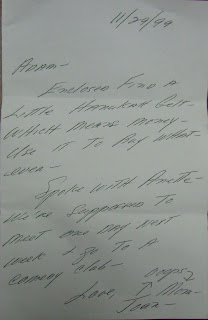 11/29/99
Adam-
Enclosed find a
Little Hanukah Gelt-
Which means money-
Use it to buy what-
ever-
Spoke with Anette-
We're supposed to
meet one day next
week & go to a
comedy club-
oops?
Love, ↑ Mom-
Joan-